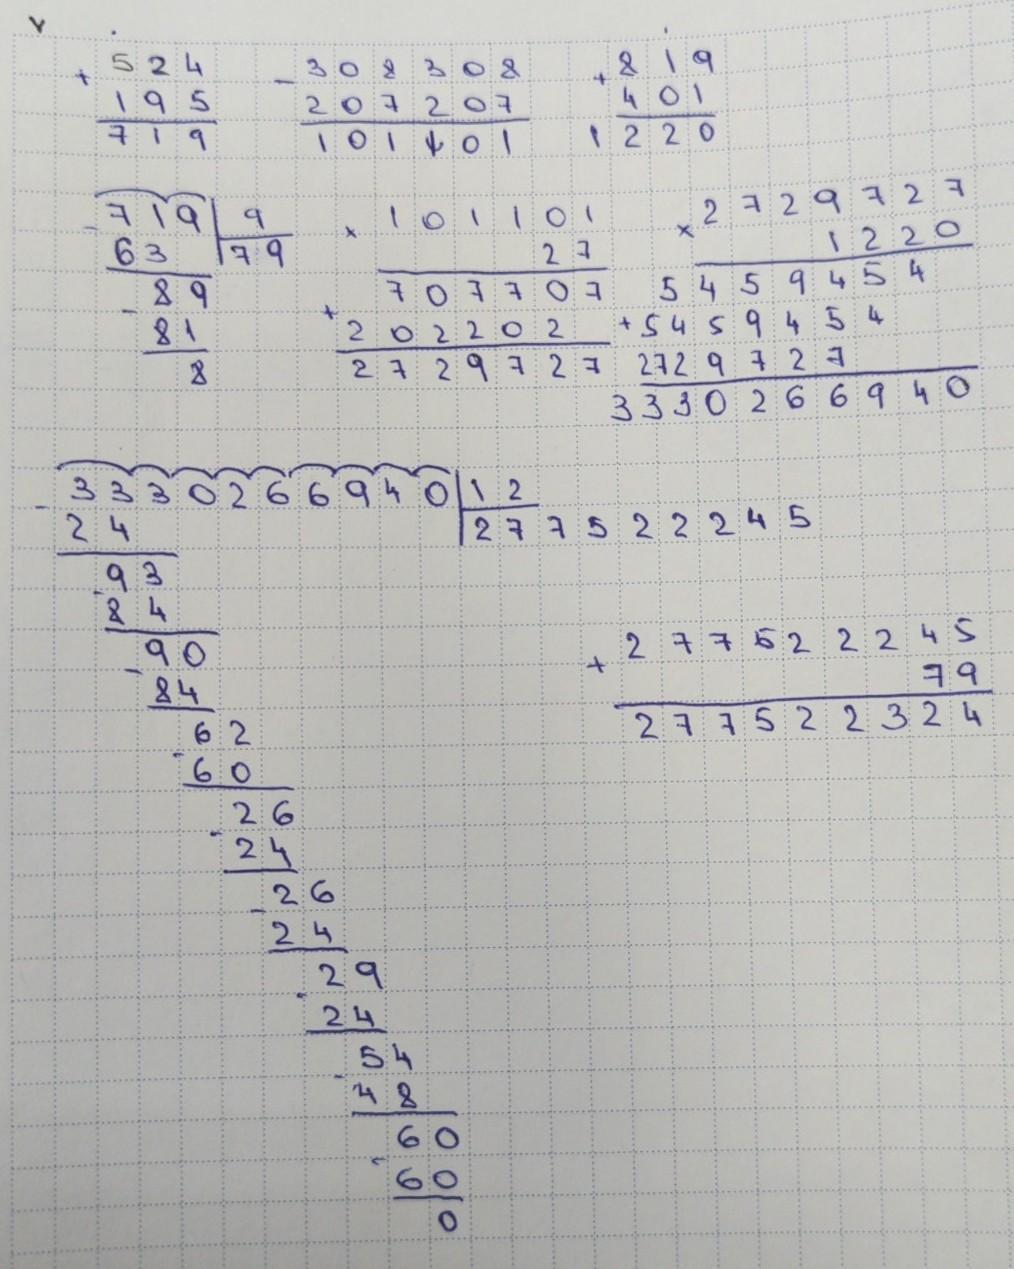 + 524
195
719
- 308308
207207
101101
+ 819
401
1220
- 719 | 9
63 | 79
- 89
81
8
× 101101
27
707707
+ 202202
2729727
× 2729727
1220
5459454
+ 5459454
2729727
3330266940
- 3330266940 | 12
24 | 277522245
- 93
84
- 90
84
- 62
60
- 26
24
- 26
24
- 29
24
- 54
48
- 60
60
0
+ 277522245
79
277522324